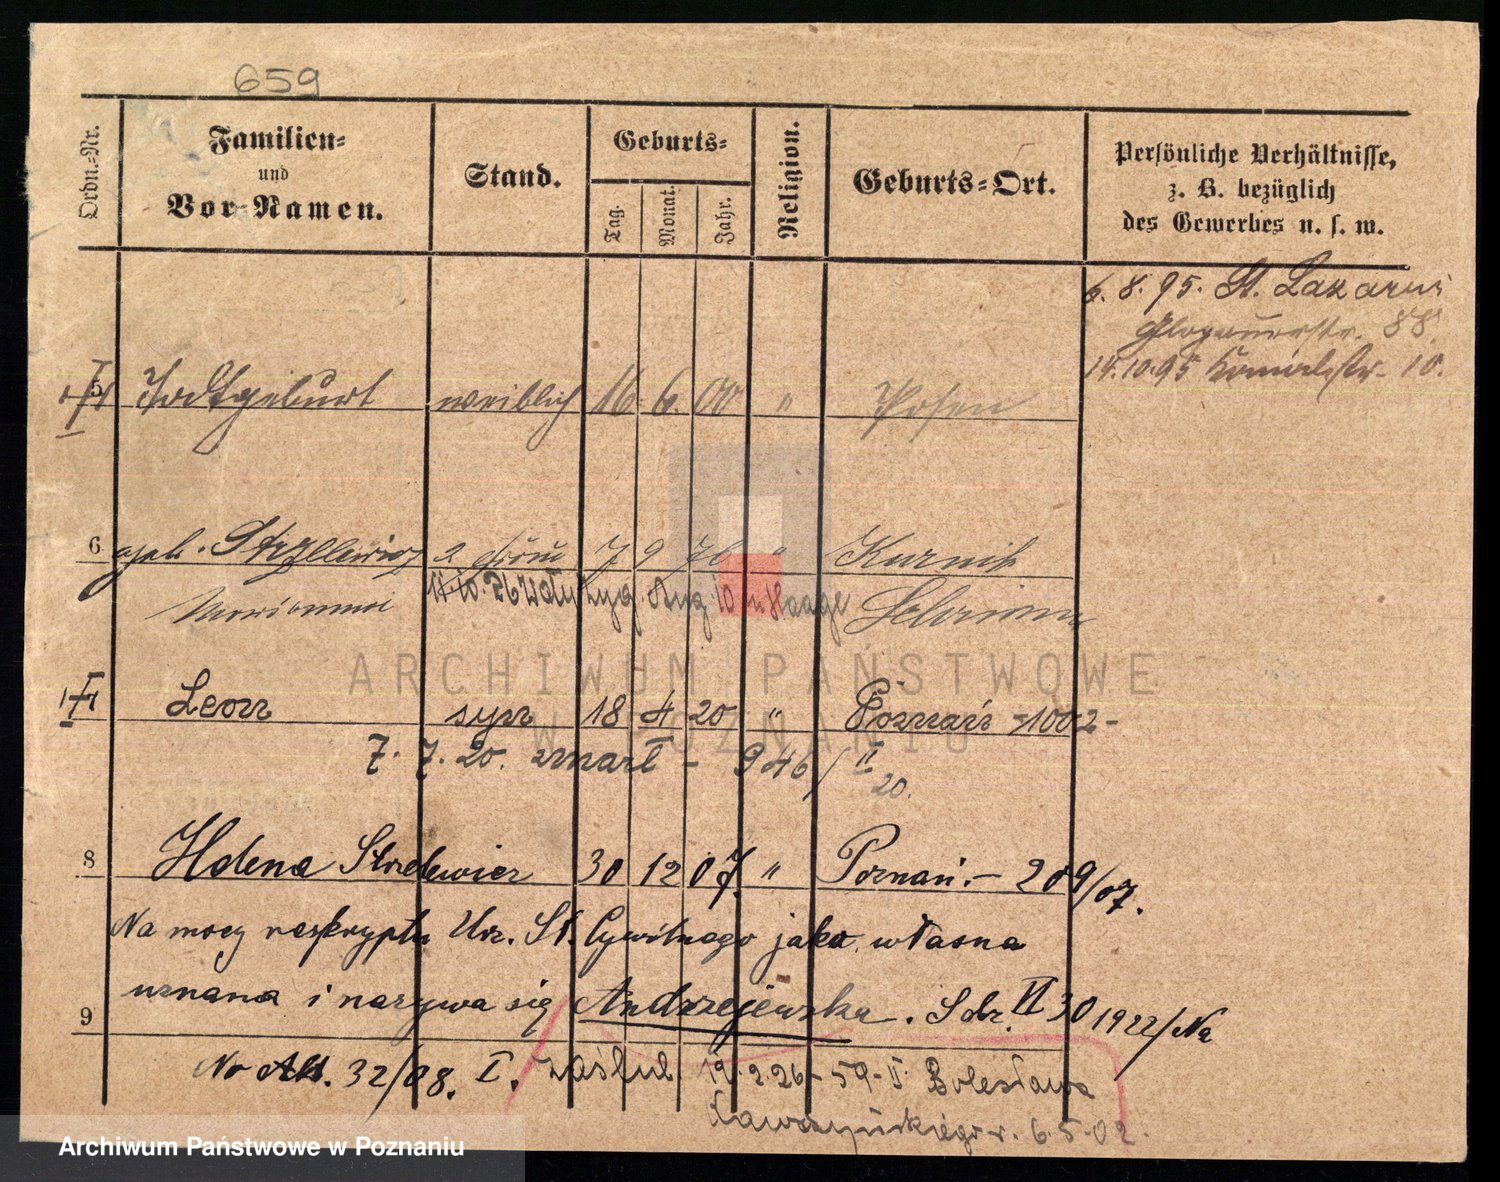 659
Ordn.-Nr.
Familien-
und
Vor-Namen.
Stand.
Geburts-
Tag.
Monat.
Jahr.
Religion.
Geburts-Ort.
Persönliche Verhältnisse,
z. B. bezüglich
des Gewerbes u. s. w.
6. 8. 95. St. Lazarus
Glogauerstr. 88.
14.10.95 10.
5 Todtgeburt weiblich 16 6. 00 " Posen
6 geb. Strzelewicz 2 7 9 76 " Kurnik
Marianna Schrimm
Leon syn 18 4 20 " Poznań -1002-
7. 7. 20. zmarł - 946/II
20.
8 Helena Strzelewicz 30 12 07. " Poznań. - 209/07.
Na mocy reskryptu Urz. St. Cywilnego jako własna
uznana i nazywa się Andrzejewska. Sdz. VI 30 1922/Na
9
No Akt. 32/08. I. zaślub. 19.2.26-59-II Bolesława
Kawczyńskiego ur. 6.5.02.
ARCHIWUM PAŃSTWOWE
W POZNANIU
Archiwum Państwowe w Poznaniu